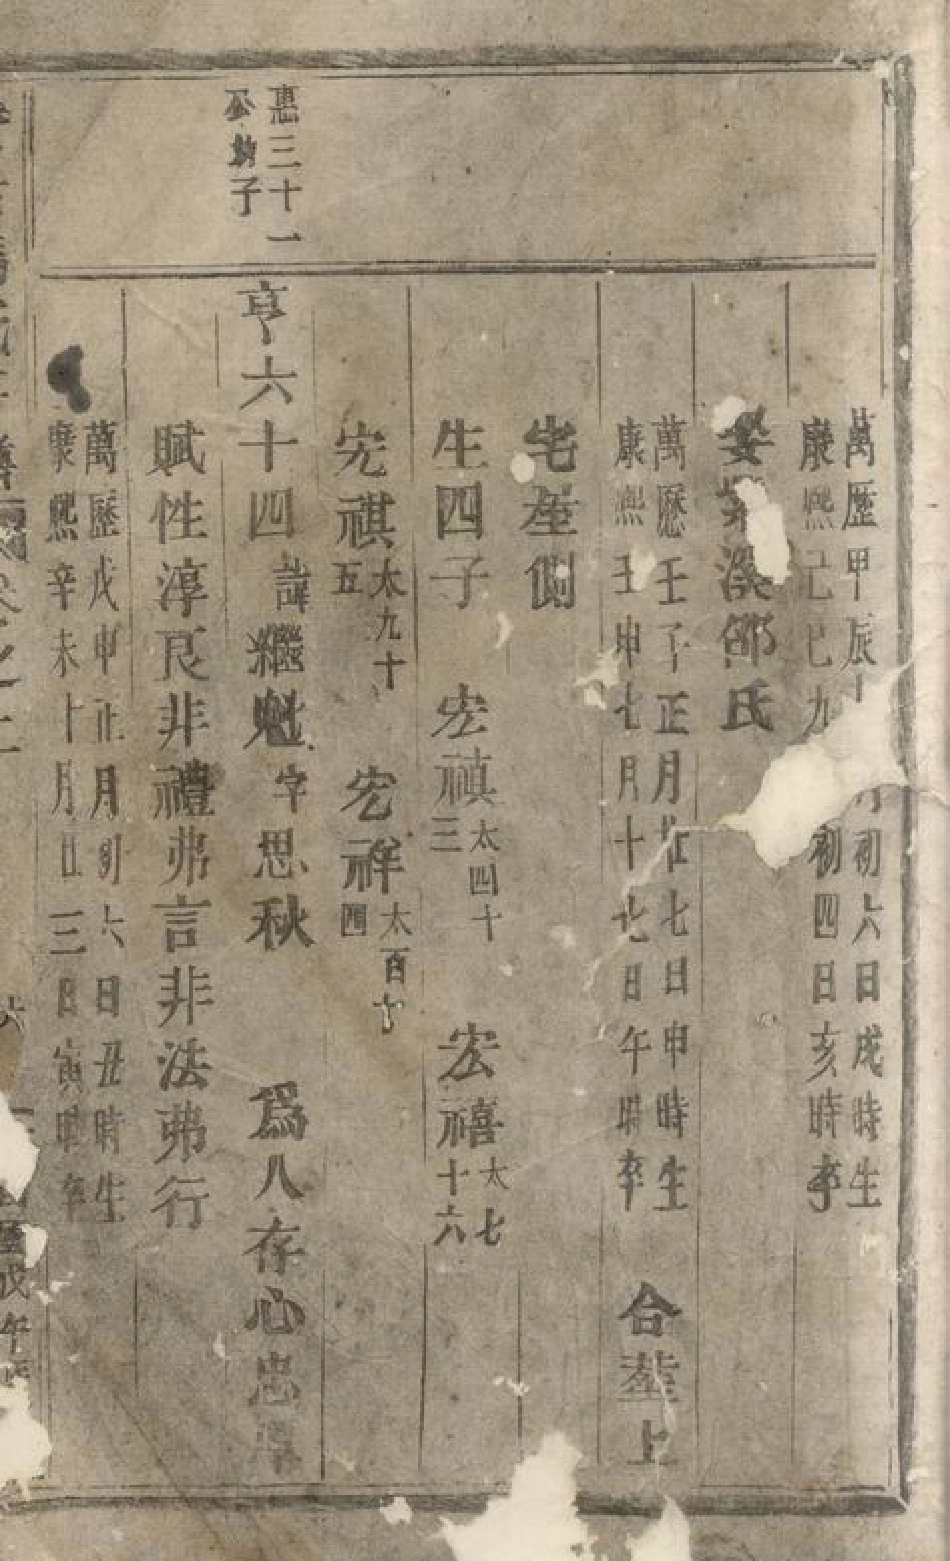 萬歷甲辰十月初六日戌時生
康熙己巳九初四日亥時卒
娶溪邵氏
萬歷壬子正月廿七日申時生
康熙壬申七月十七日午時卒
合塟上
宅塋側
生四子 宏禛太四十三 宏禧太七十六
宏祺太九十五 宏祥太百十四
惠三十一
公勲子
亨六十四諱繼魁字思秋 爲人存心忠厚
賦性淳良非禮弗言非法弗行
萬歷戊申正月初六日丑時生
康熙辛未十月廿三日寅時卒